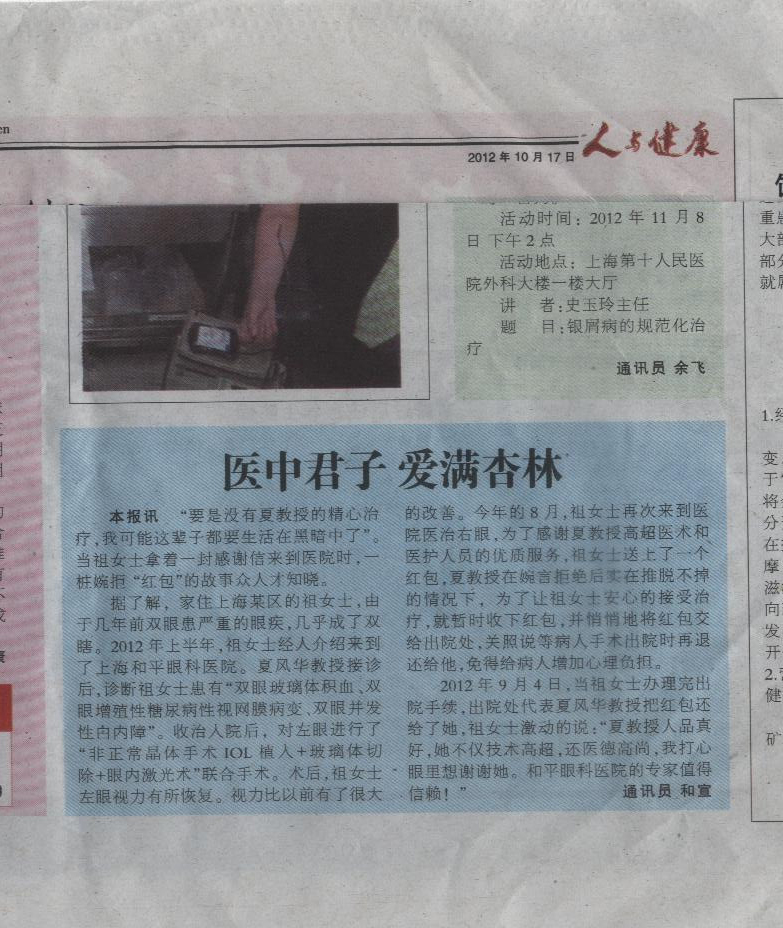 en
2012 年 10 月 17 日
人与健康
活动时间：2012 年 11 月 8
日 下午 2 点
活动地点：上海第十人民医
院外科大楼一楼大厅
讲 者:史玉玲主任
题 目:银屑病的规范化治
疗
通讯员 余飞
医中君子 爱满杏林
本报讯 “要是没有夏教授的精心治
疗,我可能这辈子都要生活在黑暗中了”。
当祖女士拿着一封感谢信来到医院时,一
桩婉拒“红包”的故事众人才知晓。
据了解，家住上海某区的祖女士,由
于几年前双眼患严重的眼疾,几乎成了双
瞎。2012 年上半年,祖女士经人介绍来到
了上海和平眼科医院。夏风华教授接诊
后,诊断祖女士患有“双眼玻璃体积血、双
眼增殖性糖尿病性视网膜病变、双眼并发
性白内障”。收治入院后，对左眼进行了
“非正常晶体手术 IOL 植入+玻璃体切
除+眼内激光术”联合手术。术后,祖女士
左眼视力有所恢复。视力比以前有了很大
的改善。今年的 8 月,祖女士再次来到医
院医治右眼,为了感谢夏教授高超医术和
医护人员的优质服务,祖女士送上了一个
红包,夏教授在婉言拒绝后实在推脱不掉
的情况下，为了让祖女士安心的接受治
疗,就暂时收下红包,并悄悄地将红包交
给出院处,关照说等病人手术出院时再退
还给他,免得给病人增加心理负担。
2012 年 9 月 4 日,当祖女士办理完出
院手续,出院处代表夏风华教授把红包还
给了她,祖女士激动的说:“夏教授人品真
好,她不仅技术高超,还医德高尚,我打心
眼里想谢谢她。和平眼科医院的专家值得
信赖！”
通讯员 和宣
重患
大部
部分
就属
1.经
变
于
将
分
在
摩
滋
向
发
开
2.
健
矿